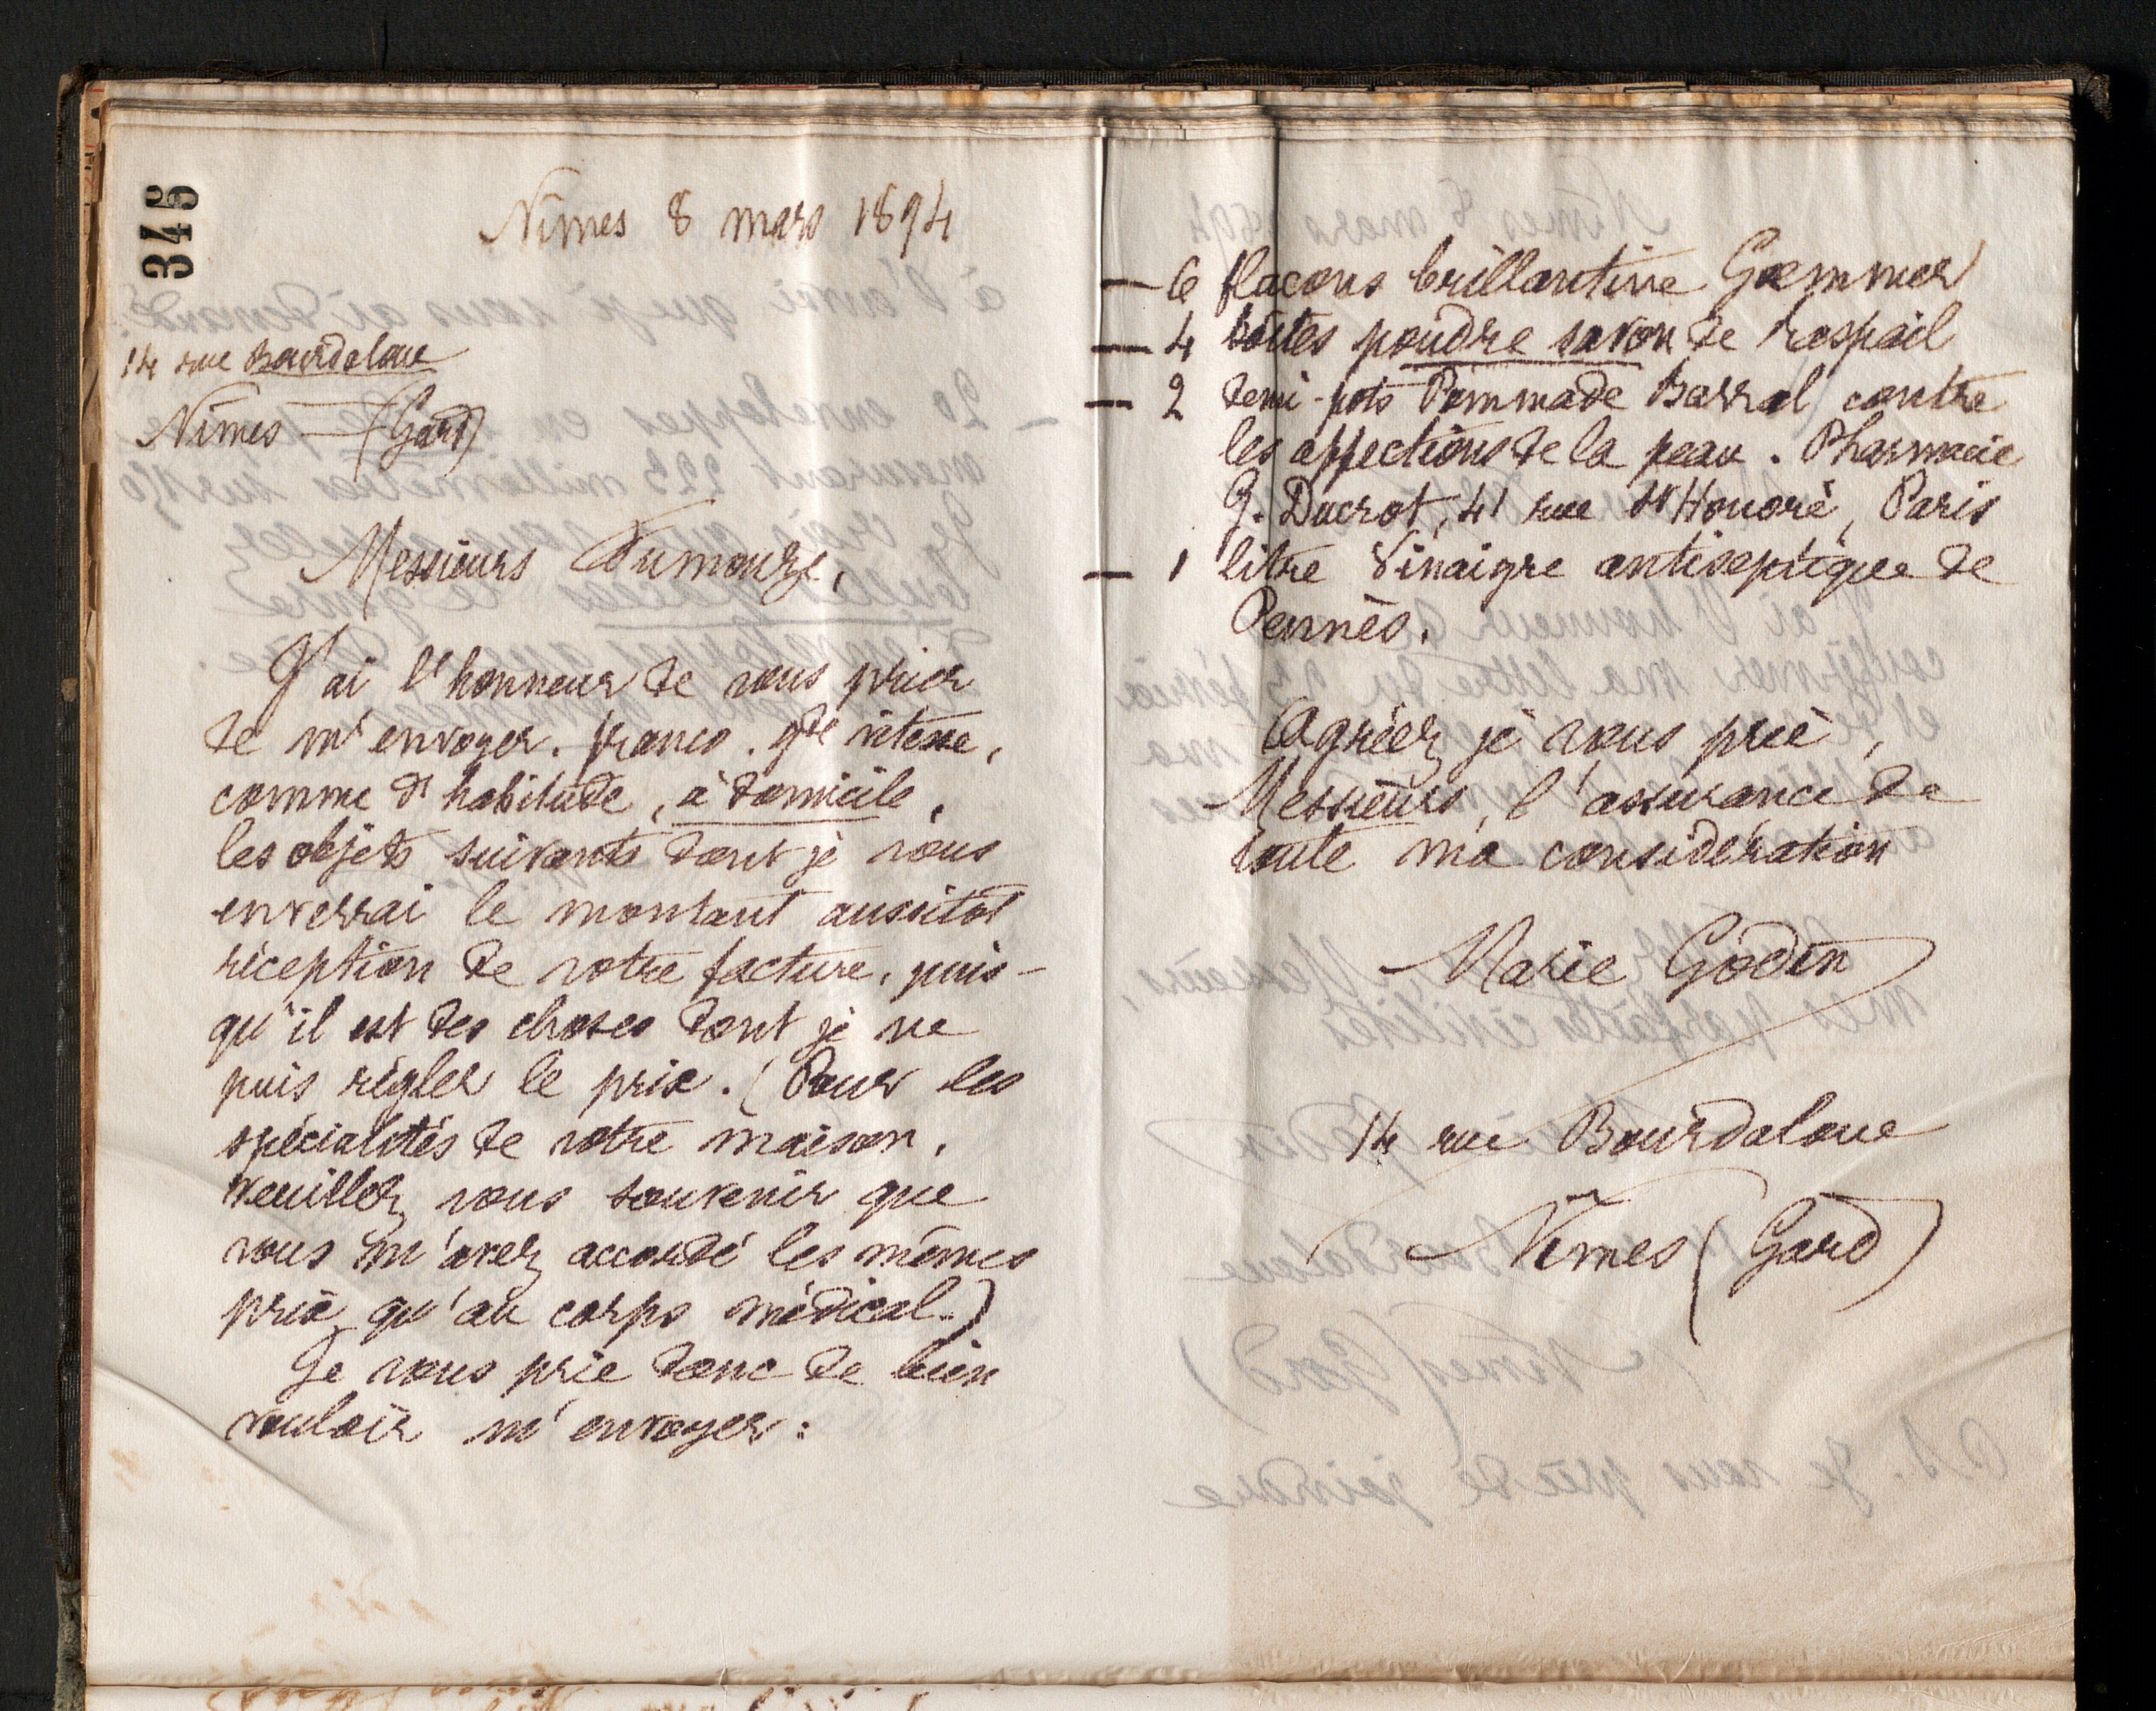 346
Nîmes 8 mars 1894
14 rue Bourdaloue
Nîmes — (Gard)
Messieurs Fumouze,
J'ai l'honneur de vous prier
de m'envoyer. franco. gde vitesse,
comme d'habitude, à domicile,
les objets suivants dont je vous
enverrai le montant aussitôt
réception de votre facture, puis-
qu'il est des choses dont je ne
puis régler le prix. (Pour les
spécialités de votre maison,
veuillez vous souvenir que
vous m'avez accordé les mêmes
prix qu'au corps médical.)
Je vous prie donc de bien
vouloir m'envoyer:
— 6 flacons brillantine
— 4 boîtes poudre savon de Raspail
— 2 demi-pots Pommade Barral contre
les affections de la peau. Pharmacie
G. Ducrot, 41 rue St Honoré, Paris
— 1 litre Vinaigre antiseptique de
Pennès.
Agréez je vous prie,
Messieurs, l'assurance de
toute ma considération
Marie Godin
14 rue Bourdaloue
Nîmes (Gard)